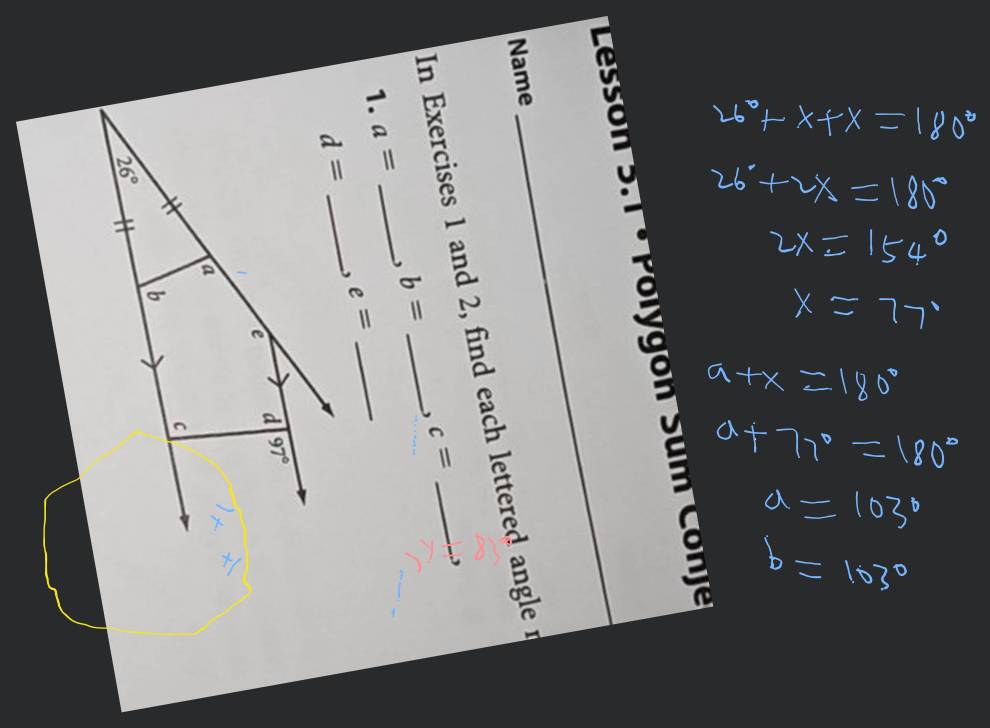 Lesson 5.1 • Polygon Sum Conje
Name
In Exercises 1 and 2, find each lettered angle
1. a = ____, b = ____, c = ____,
d = ____, e = ____
26°
a
b
e
d
97°
c
26° + x + x = 180°
26° + 2x = 180°
2x = 154°
x = 77°
a + x = 180°
a + 77° = 180°
a = 103°
b = 103°